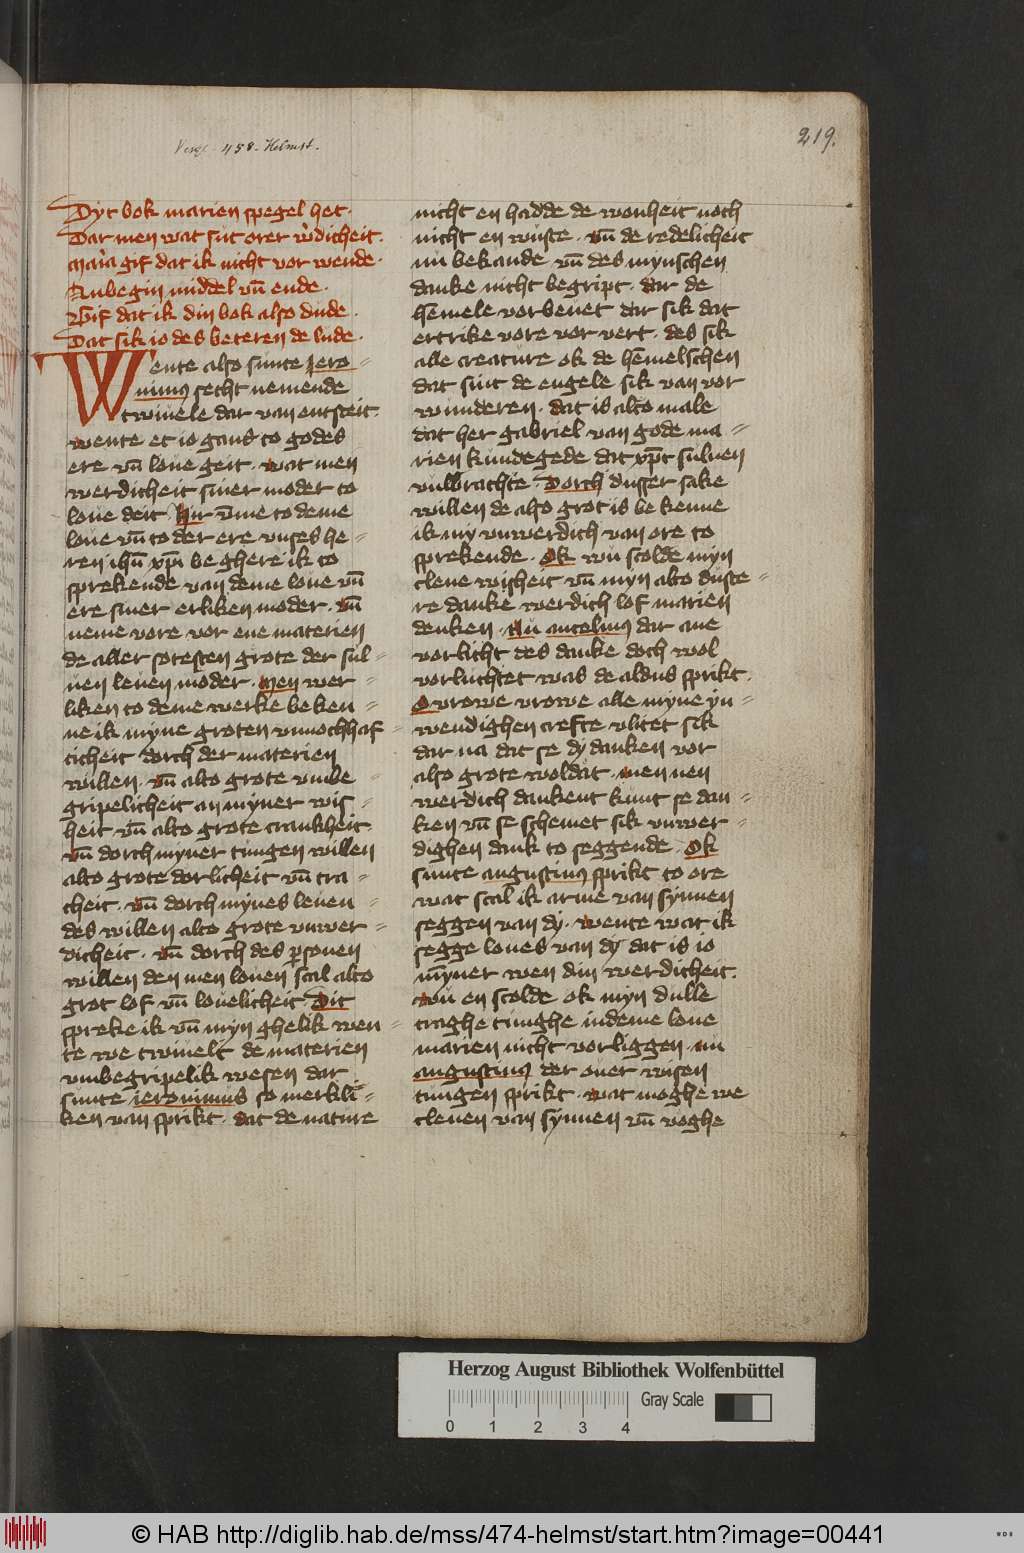 Vergl. 458. Helmst.
219.
Dyt bok marien spegel het.
Dar men wat sut orer w̉dicheit.
maria gif dat ik nicht vor wende.
Anbegin middel vn̄ ende.
Gif dat ik din bok also dude.
Dat sik io des beteren de lude.
Wente also sunte Jero-
nimus secht nemende
twiuele dar van entsteit.
wente et io gans to godes
ere vn̄ loue geit. wat men
werdicheit siner moder to
loue deit. Hir v̄me to deme
loue vn̄ to der ere vnses he-
ren ihū xpī be ghere ik to
sprekende van deme loue vn̄
ere siner erliken moder. vn̄
neme vore vor ene materien
de aller sotesten grote der sul-
uen leuen moder. men wer-
liken to deme werke beken-
ne ik myne groten vnnochhaf-
ticheit dorch der materien
willen. vn̄ alto grote vmbe-
gripelicheit an myner wis-
heit vn̄ alto grote crankheit.
vn̄ dorch myner tungen willen
alto grote dorlicheit vn̄ tra-
cheit. vn̄ dorch mynes leuen-
des willen alto grote vnwer-
dicheit. vn̄ dorch des ꝑsonen
willen den men louen scal alto
grot lof vn̄ louelicheit. Dit
spreke ik vn̄ myn ghelik wen-
te we twiuelt de materien
vmbegripelik wesen dar
sunte ieronimus so merkli-
ken van sprikt. dat de nature
nicht en hadde de wonheit noch
nicht en wuste. vn̄ de redelicheit
nu bekande vn̄ des mynschen
danke nicht begript. dar de
hēmele vorbeuet dar sik dat
ertrike vore vor vert. des sik
alle creature ok de hēmelschen
dat sint de engele sik van vor
wunderen. dat is alto male
dat her gabriel van gode ma-
rien kundegede dat xpc̄ suluen
vullbrachte. Dorch dusser sake
willen de also grot is be kenne
ik my vnwerdich van ore to
sprekende. Ok wu scolde myn
clene wisheit vn̄ myn alto duste-
re danke werdich lof marien
denken. Nu ancelmus dar ane
vorlicht des danke doch wol
vorluchtet was de aldus sprikt.
O vrowe vrowe alle myne yn-
wendighen crefte vlitet sik
dar na dat se dy danken vor
also grote woldat. men nen
werdich dankent kunt se dan-
ken vn̄ se schemet sik vnwer-
dighen dank to seggende. Ok
sunte augustinus sprikt to ore
wat scal ik arme van synnen
seggen van dy. wente wat ik
segge loues van dy dat is io
mȳner wen din werdicheit.
wu en scolde ok myn dulle
traghe tunghe indeme loue
marien nicht vorliggen. nu
augustinus der ouer wisen
tungen sprikt. wat moghe we
clenen van synnen vn̄ voghe
Herzog August Bibliothek Wolfenbüttel
Gray Scale
0 1 2 3 4
© HAB http://diglib.hab.de/mss/474-helmst/start.htm?image=00441